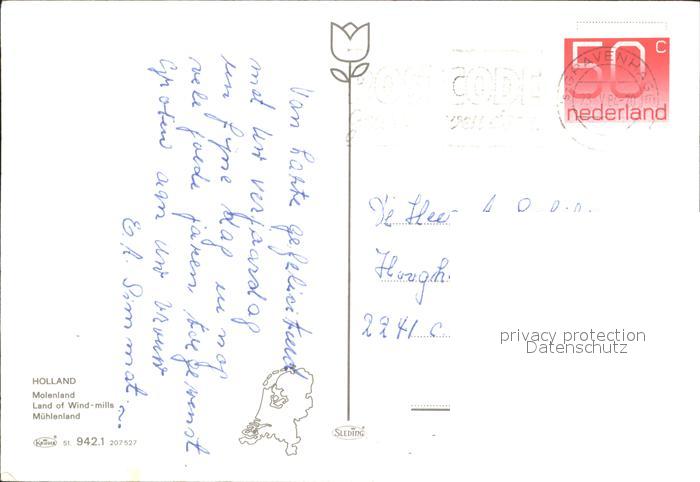 Van harte gefeliciteerd
met Uw verjaardag
een fijne dag en nog
vele goede jaren, toegewenst.
Groeten aan Uw vrouw
HOLLAND
Molenland
Land of Wind-mills
Mühlenland
KRÜGER
St. 942.1 207527
SLEDING
POSTCODE
'S-GRAVENHAGE
50 C
nederland
De Heer
Hoogh.
2241 C
privacy protection
Datenschutz